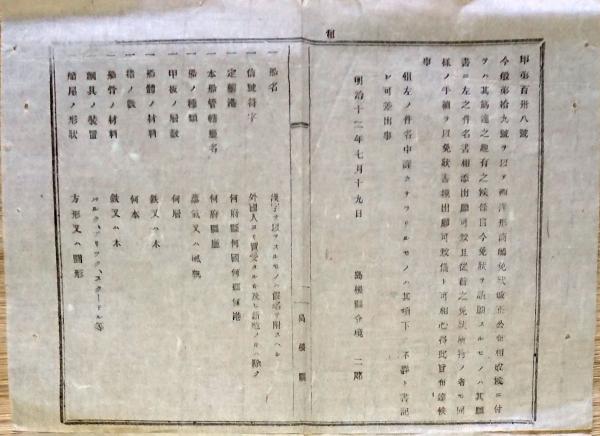 甲第百卅八號
今般第拾九號ヲ以テ西洋形商船免狀改正公布相成候ニ付
テハ其筋違之趣有之候條自今免狀ヲ請願スルモノハ其願
書ニ左之件名書相添出願可致且從前之免狀所持ノ者モ同
樣ノ手續ヲ以免狀書換出願可致儀ト可相心得此旨布達候
事
但左ノ件名中詳カナラサルモノハ其項下ニ不詳ト書記
シ可差出事
明治十二年七月十九日
島根縣令境二郎
一 船名 漢字ヲ以テスルモノハ假名ヲ附スヘシ
一 信號符字 外國人ヨリ買受タルモ及ヒ新造ノ分ハ除ク
一 定繫港 何府縣何國何郡何港
一 本船管轄廳名 何府縣廳
一 船ノ種類 蒸氣又ハ風帆
一 甲板ノ層數 何層
一 船體ノ材料 鐵又ハ木
一 檣ノ數 何本
一 船骨ノ材料 鐵又ハ木
一 綱具ノ裝置 バルク、ブリック、スクーネル等
一 船尾ノ形狀 方形又ハ圓形
島根縣